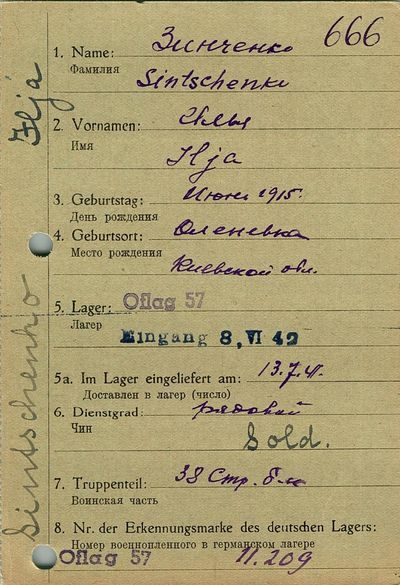 666
1. Name: Зинченко
Фамилия
Sintschenko
2. Vornamen: Илья
Имя
Ilja
3. Geburtstag: Июнь 1915.
День рождения
4. Geburtsort: Оленевка
Место рождения
Киевской обл.
5. Lager: Oflag 57
Лагер
Eingang 8, VI 42
5a. Im Lager eingeliefert am: 13.7.41.
Доставлен в лагер (число)
6. Dienstgrad: рядовой
Чин
Sold.
7. Truppenteil: 38 Стр. б-н
Воинская часть
8. Nr. der Erkennungsmarke des deutschen Lagers:
Номер военнопленного в германском лагере
Oflag 57 11.209
Sintschenko Ilja